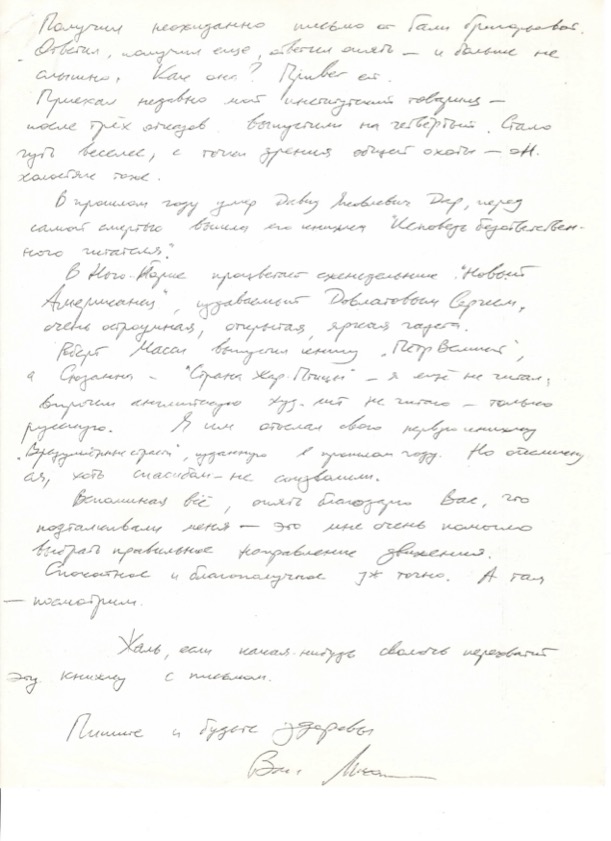 Получил неожиданно письмо от Гали Григорьевой.
Ответил, получил еще, ответил опять — и больше не
слышно. Как она? Привет ей.
Приехал недавно мой институтский товарищ —
после трёх отказов выпустили на четвёртый. Стало
чуть веселее, с точки зрения общей охоты — он
холостяк тоже.
В прошлом году умер Давид Яковлевич Дар, перед
самой смертью вышла его книжка "Исповедь безответствен-
ного читателя".
В Нью-Йорке процветает еженедельник "Новый
Американец", издаваемый Довлатовым Сергеем,
очень остроумная, открытая, яркая газета.
Роберт Масси выпустил книгу "Петр Великий",
а Сюзанна — "Страна Жар-Птицы" — я ещё не читал,
впрочем английскую худ. лит не читаю — только
русскую. Я им отослал свою первую книжку
изданную в прошлом году. Но
хоть спасибом — не соизволили.
Вспоминая всё, опять благодарю Вас, что
подталкивали меня — это мне очень помогло
выбрать правильное направление движения.
Спокойное и благополучное уж точно. А там
— посмотрим.
Жаль, если какая-нибудь сволочь перехватит
эту книжку с письмом.
Пишите и будьте здоровы
Ваш